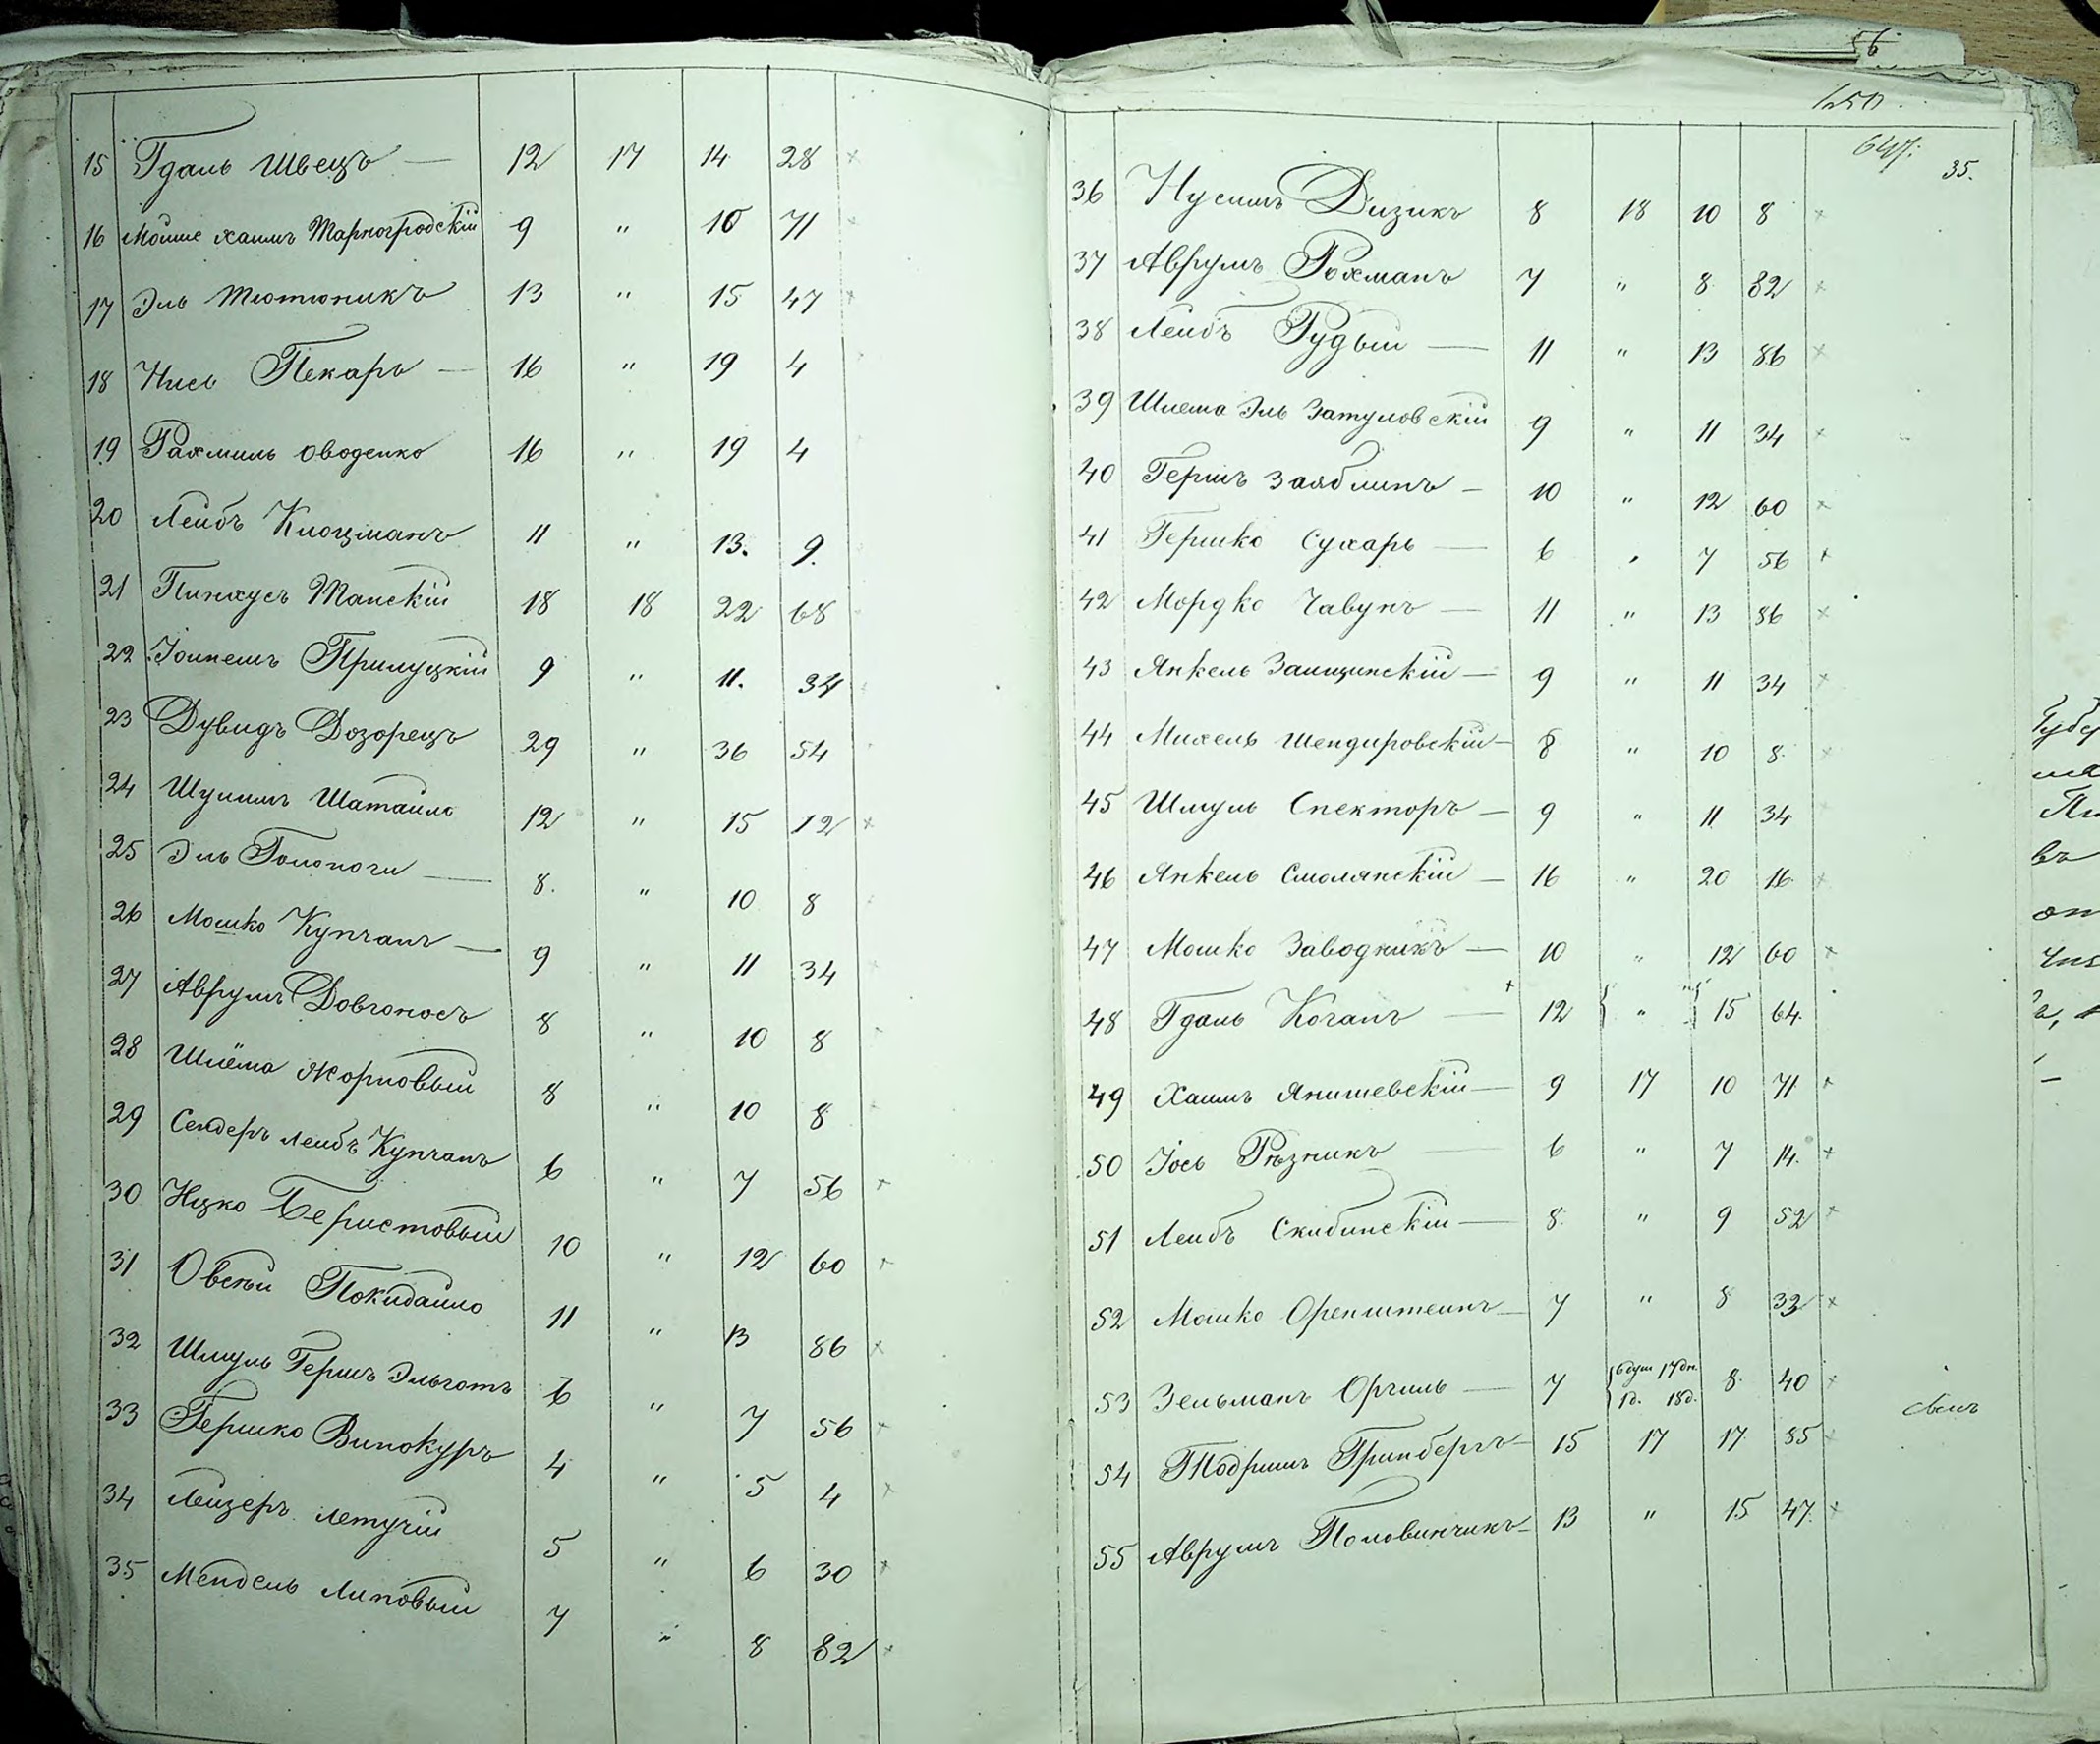 15 Гдаль Швецъ — 12 17 14 28 ×
16 Мойше Хаимъ Тарногродскій 9 " 10 71
17 Эль Тютюникъ 13 " 15 47 ×
18 Нись Пекарь — 16 " 19 4
19 Рахмиль Оводенко 16 " 19 4
20 Лейбъ Клоцманъ 11 " 13. 9.
21 Пинхусъ Танскій 18 18 22 68
22 Прилуцкій 9 " 11. 34
23 Дувидъ Дозорецъ 29 " 36 54
24 Шулимъ Шатайло 12 " 15 12 ×
25 Эль Голоноги — 8. " 10 8
26 Мошко Купчанъ — 9 " 11 34
27 Аврумъ Довгоносъ 8 " 10 8
28 Шлёма Жорновый 8 " 10 8
29 Сендеръ Лейбъ Купчанъ 6 " 7 56 ×
30 Ицко Беристовый 10 " 12 60 ×
31 Овсѣй Покидайло 11 " 13 86 ×
32 Шмуль Гершъ Эльготъ 6 " 7 56 ×
33 Гершко Винокуръ 4 " 5 4 ×
34 Лейзеръ Летучій 5 " 6 30 ×
35 Мендель Липовый 7 " 8 82 ×
56
650.
647:
35.
36 Нусимъ Дизикъ 8 18 10 8 ×
37 Аврумъ Рохманъ 7 " 8 82 ×
38 Лейбъ Рудый — 11 " 13 86 ×
39 Шлема Эль Затуловскій 9 " 11 34 ×
40 Гершъ Заяблинъ — 10 " 12 60 ×
41 Гершко Сухарь — 6 " 7 56 ×
42 Мордко Чавунъ — 11 " 13 86 ×
43 Янкель Заищинскій — 9 " 11 34 ×
44 Михель Шендировскій — 8 " 10 8 ×
45 Шмуль Спекторъ — 9 " 11 34
46 Янкель Смолянскій — 16 " 20 16 ×
47 Мошко Заводникъ — 10 " 12 60 ×
48 Гдаль Коганъ — × 12 { " } 15 64.
49 Хаимъ Янишевскій — 9 17 10 71 ×
50 Іось Рѣзникъ — 6 " 7 14. ×
51 Лейбъ Скибинскій — 8. " 9 52 ×
52 Мошко Оренштейнъ — 7 " 8 33 ×
53 Зельманъ Оргиль — 7 { 6 душ 17 дн. 1 д. 18 д. 8. 40 ×
54 Тодришъ Гринбергъ — 15 17 17 85 ×
55 Аврумъ Половинчикъ — 13 " 15 47. ×